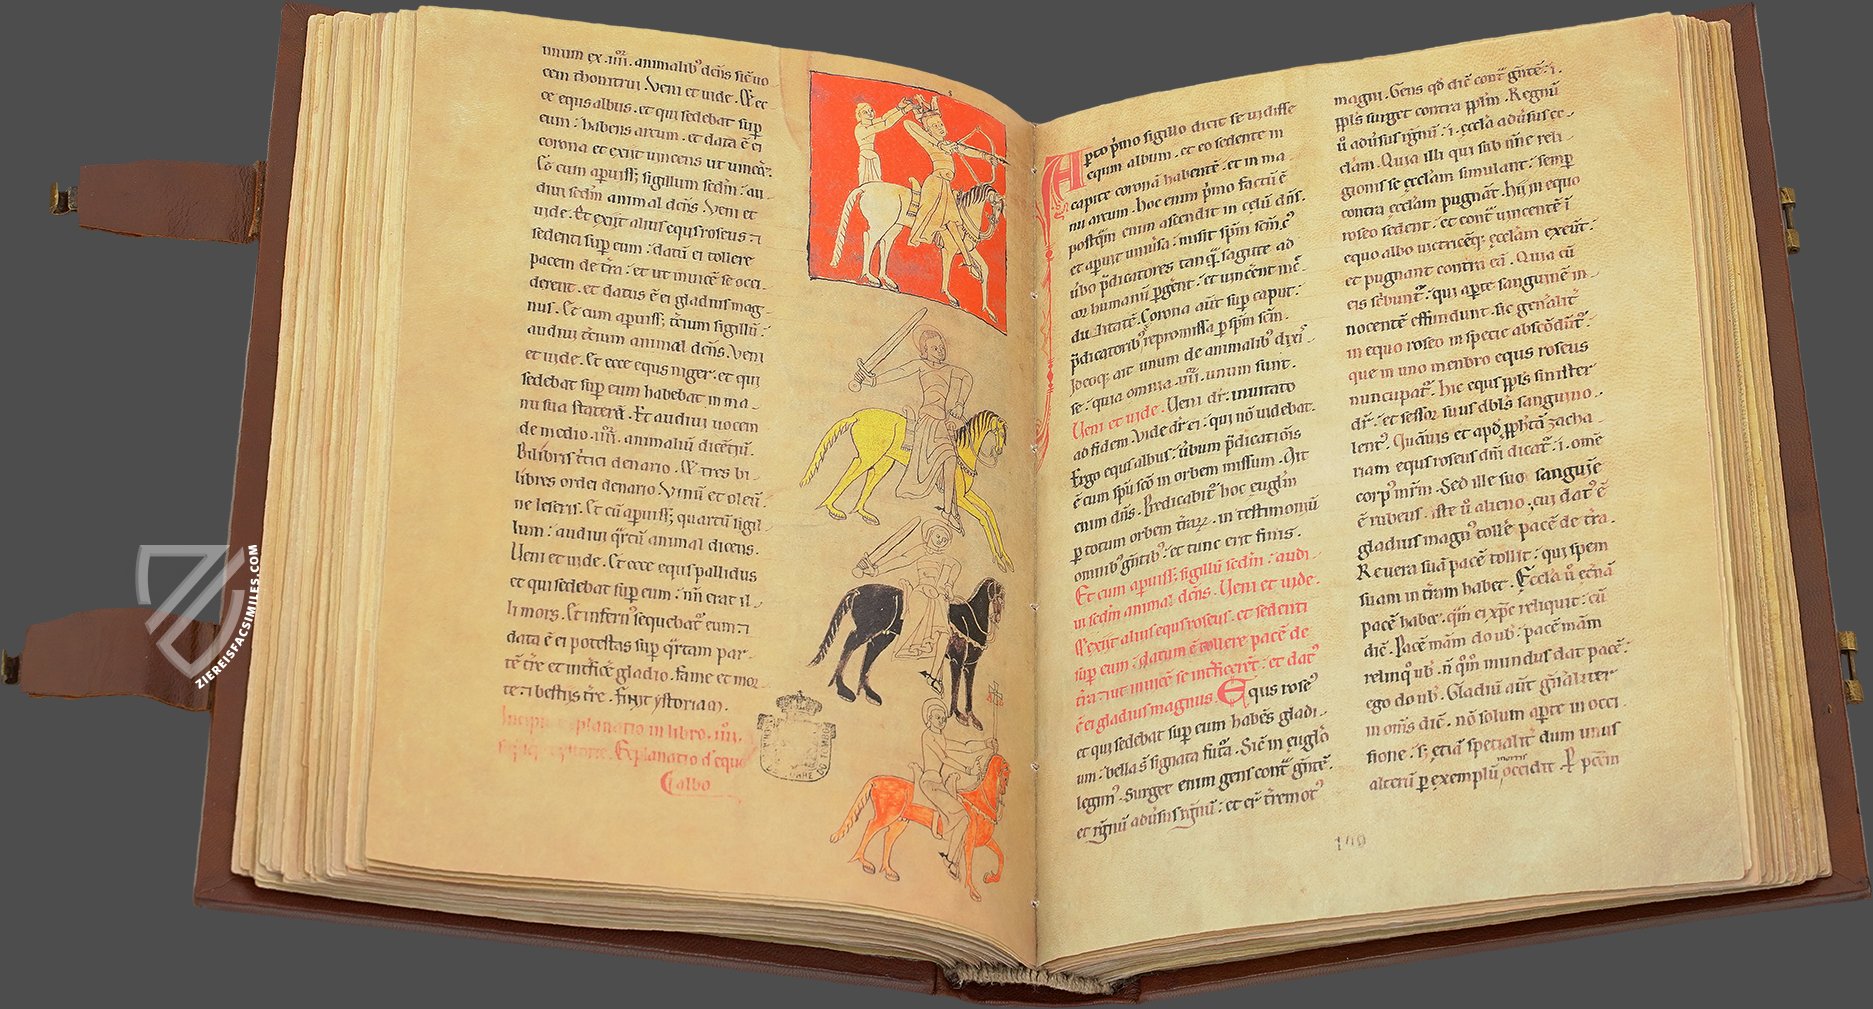 unum ex .iiii. animalib' dc̄ns sic̄ uo
cem thonitrui. Veni et uide. Et ec
ce equs albus. et qui sedebat sup
eum: habens arcum. et data ē ei
corona et exiit uincens ut uinc̄er.
Et cum apuiss; sigillum sedm̄: au-
diui sedm̄ animal dc̄ns. Veni et
uide. Et exiit alius equs roseus: ⁊
sedenti sup eum: datū ei tollere
pacem de tr̄a: et ut inuicē se occi-
derent. et datus ē ei gladius mag-
nus. Et cum apuiss; tc̄ium sigillū:
audiui tc̄ium animal dc̄ns. Veni
et uide. Et ecce equs niger. et qui
sedebat sup eum habebat in ma-
nu sua staterā. Et audiui uocem
de medio .iiii. animaliū dicētiū.
Bilibris tritici denario. Et tres bi-
libres ordei denario. Vinū et oleū
ne leseris. Et cū apuiss; quartū sigil-
lum: audiui qr̄tū animal dicens.
Veni et uide. Et ecce equs pallidus
et qui sedebat sup eum: nn̄ erat il-
li mors. Et infern' sequebat' eum: ⁊
data ē ei potestas sup qr̄tam par-
tē tr̄e et int̄fic̄e gladio. fame et mor-
te. ⁊ bestiis tr̄e. finit ystoriam.
Incipit explanatio in libro .iiii.
Explanatio d' equo
albo
Apto p̄mo sigillo dicit se uidisse
equm album. et eo sedente in
capite coronā habentē. et in ma-
nu arcum. hoc enim p̄mo factū ē
postqm̄ enim ascendit in celū dn̄s.
et apuit uniūsa: misit spm̄ scm̄ c'
ūbo p̄dicatores tanq̄ sagitte ad
cor humanū pgent: et uincēnt inc̄-
dulitatē. Corona aūt sup caput:
p̄dicatorib' repromissa p spm̄ scm̄.
Ideoq; ait unum de animalib' dixi-
se: quia omnia .iiii. unum sunt.
Veni et uide. Veni dr̄: inuitato
ad fidem. Vide dr̄ ei: qui nō uidebat.
Ergo equs albus: ūbum p̄dicatiōis
ē cum spū scō in orbem missum. Ait
enim dn̄s. Predicabit' hoc euglm̄
p totum orbem tr̄aꝝ. in testimoniū
omnib' gn̄tib': et tunc erit finis.
Et cum apuiss; sigillū sedm̄: audi-
ui sedm̄ animal dc̄ns. Veni et uide.
Et exiit alius equs roseus. et sedenti
sup eum: datum ē tollere pacē de
tr̄a: ut inuicē se int̄ficerēt: et dat'
ē ei gladius magnus. Equs rose'
et qui sedebat sup eum habēs gladi-
um: bella s̄ signata futr̄a. Sic̄ in euglō
legim'. Surget enim gens cont̄ gn̄tē.
et rḡnū adūsus rḡnū: et er̄t tr̄emot'
magni. Gens qd̄ dic̄ cont̄ gn̄tē: .i.
ppl's surget contra pplm̄. Regnū
ū adūsus rgnū: .i. eccl'a adūsus ec-
clam. Quia illi qui sub n̄ine reli-
gionis se eccl'am simulant: semp
contra eccl'am pugnāt. Hii in equo
roseo sedent: et cont̄ uincentē ī
equo albo uictricēq; eccl'am exeūt:
et pugnant contra eā. Quia cū
eis sc̄bunt': qui apte sanguinē in-
nocentē effundunt. sic gen̄alit'
in equo roseo in specie abscōdūt'.
que in uno menbro equs roseus
nuncupat'. hic equs ppl's sinister
dr̄: et sessor suus dbl's sanguino-
lent'. Quāuis et apd̄ pph̄tā zacha
riam equs roseus dn̄i dicat': .i. ome
corp' mr̄m. Sed ille suo sanguine
ē rubeus. iste ū alieno. cui dat' ē
gladius magn' tolle pacē de tr̄a.
Reuera suā pacē tollit: qui spem
suam in tr̄am habet. Eccl'a ū et̄nā
pacē habet. qm̄ ei xp̄c reliquit: cū
dic̄. Pacē mām do ub̄: pacē mām
relinq̄ ub̄. n̄ qm̄ mundus dat pacē:
ego do ub̄. Gladiū aūt gn̄aliter
in om̄s dic̄. nō solum apte in occi-
sione: s; etiā specialit' dum unus
alterū p exemplū mortis occidit. Et pacē m
140
TORRE DO TOMBO
ZIEREISFACSIMILES.COM